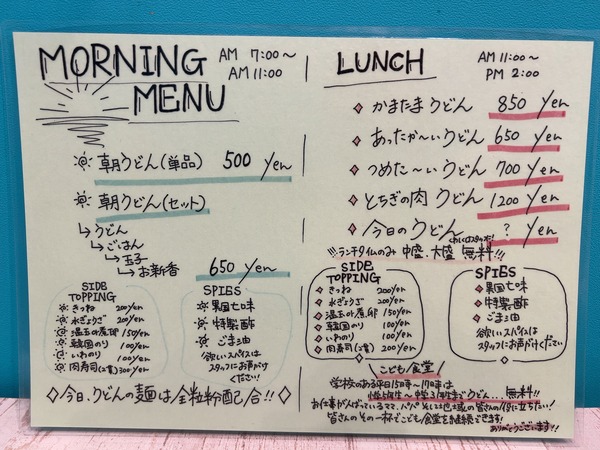 MORNING
MENU
AM 7:00〜
AM 11:00
朝うどん(単品) 500 Yen
朝うどん(セット)
↳うどん
↳ごはん
↳玉子
↳お新香
650 Yen
SIDE
TOPPING
きつね 200yen
水ぎょうざ 200yen
温玉or産卵 150yen
韓国のり 100yen
いわのり 100yen
肉寿司(2貫) 300yen
SPIES
黒国七味
特製酢
ごま油
欲しいスパイスは
スタッフにお声がけ
ください!
◇今日、うどんの麺は全粒粉配合!!◇
LUNCH
AM 11:00〜
PM 2:00
かまたまうどん 850 Yen
あったか〜いうどん 650 Yen
つめた〜いうどん 700 Yen
とちぎの肉うどん 1200 Yen
今日のうどん ? Yen
くわしくはスタッフまで!
!!!ランチタイムのみ 中盛、大盛 無料!!
SIDE
TOPPING
きつね 200yen
水ぎょうざ 200yen
温玉or産卵 150yen
韓国のり 100yen
いわのり 100yen
肉寿司(2貫) 200yen
SPIES
黒国七味
特製酢
ごま油
欲しいスパイスは
スタッフにお声がけください
こども食堂
学校のある平日15時〜17時は
小学1年生〜中学3年生までうどん...無料!!
お仕事がんばっているママ、パパそして地域の皆さんの役に立ちたい!
皆さんのその一杯でこども食堂を継続できます!
ありがとうございます!!